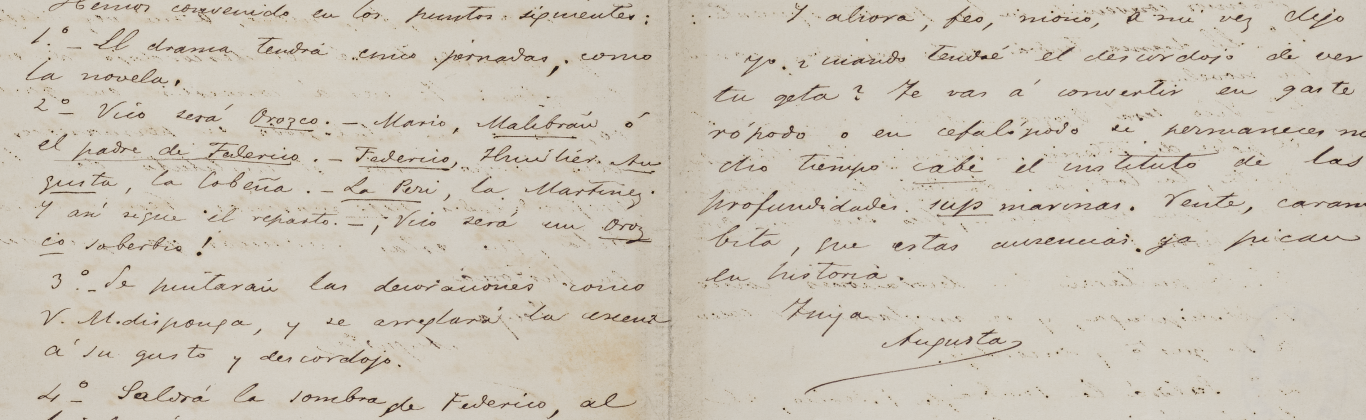 Hemos convenido en los puntos siguientes:
1.º – El drama tendrá cinco jornadas, como
la novela.
2º – Vico será Orozco. – Mario, Malibrán ó
el padre de Federico. – Federico, Thuillier. Au
gusta, la Cobeña. – La Peri, la Martinez.
Y así sigue el reparto. – ¡Vico será un Oroz
co soberbio!
3.º – Se pintarán las decoraciones como
V. M. disponga, y se arreglará la escena
á su gusto y descordojo.
4º – Saldrá la sombra de Federico, al
Y ahora, feo, mono, á mi vez dijo
yo. ¿cuando tendré el descordojo de ver
tu geta? Te vas á convertir en gaste
rópodo o en cefalópodo si permaneces
tiempo cabe el instituto de las
profundidades sup marinas. Vente, caram
bita, que estas ausencias ya pican
en historia.
Tuya
Augusta